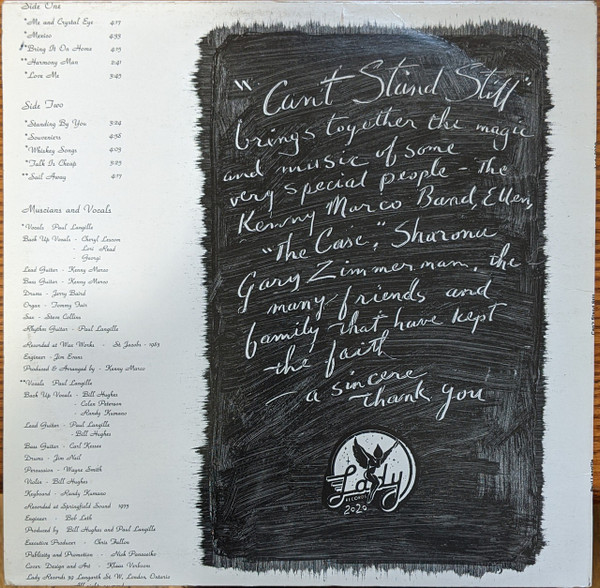 Side One
*Me and Crystal Eye 4:27
*Mexico 4:55
**Bring It On Home 4:25
**Harmony Man 2:41
*Love Me 3:45
Side Two
*Standing By You 3:24
*Souveniers 4:56
*Whiskey Songs 4:03
*Talk Is Cheap 3:25
**Sail Away 4:27
Muscians and Vocals
*Vocals Paul Langille
Back Up Vocals - Cheryl
- Lori
- Georgi
Lead Guitar - Kenny Marco
Bass Guitar - Kenny Marco
Drums - Jerry Baird
Organ - Tommy
Sax - Steve Collins
Rhythm Guitar - Paul Langille
Recorded at Wax Works - St. Jacobs - 1983
Engineer - Jim Evans
Produced & Arranged by - Kenny Marco
**Vocals Paul Langille
Back Up Vocals - Bill Hughes
- Colin Peterson
- Randy
Lead Guitar - Paul Langille
- Bill Hughes
Bass Guitar - Carl
Drums - Jim Neil
Percussion - Wayne Smith
Violin - Bill Hughes
Keyboard - Randy
Recorded at Springfield Sound
Engineer - Bob Leth
Produced by Bill Hughes and Paul Langille
Executive Producer - Chris
Publicity and Promotion - Nick
Cover Design and Art - Klaas Verboom
Lady Records 39 Langarth St. W., London, Ontario
"Can't Stand Still"
brings together the magic
and music of some
very special people - the
Kenny Marco Band, Ellen,
"The Case," Sharona
Gary Zimmerman, the
many friends and
family that have kept
the faith
- a sincere
thank you
Lady
RECORDS
2020